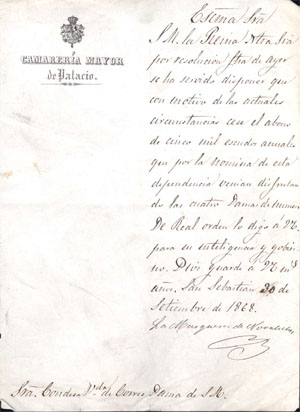 CAMARERÍA MAYOR
de Palacio.
Exma Sra
S.M. la Reina Ntra Sra
por resolucion fha de ayer
se ha servido disponer que
con motivo de las actuales
circunstancias cese el abono
de cinco mil escudos anuales
que por la nomina de esta
dependencia venian disfrutan
do las cuatro Damas de
De Real orden lo digo á VE.
para su inteligencia y gobier
no. Dios guarde á VE ms
años. San Sebastian 20 de
Setiembre de 1868.
La Marquesa de Novaliches
Sra. Condesa Vda de Torre Dama de S.M.